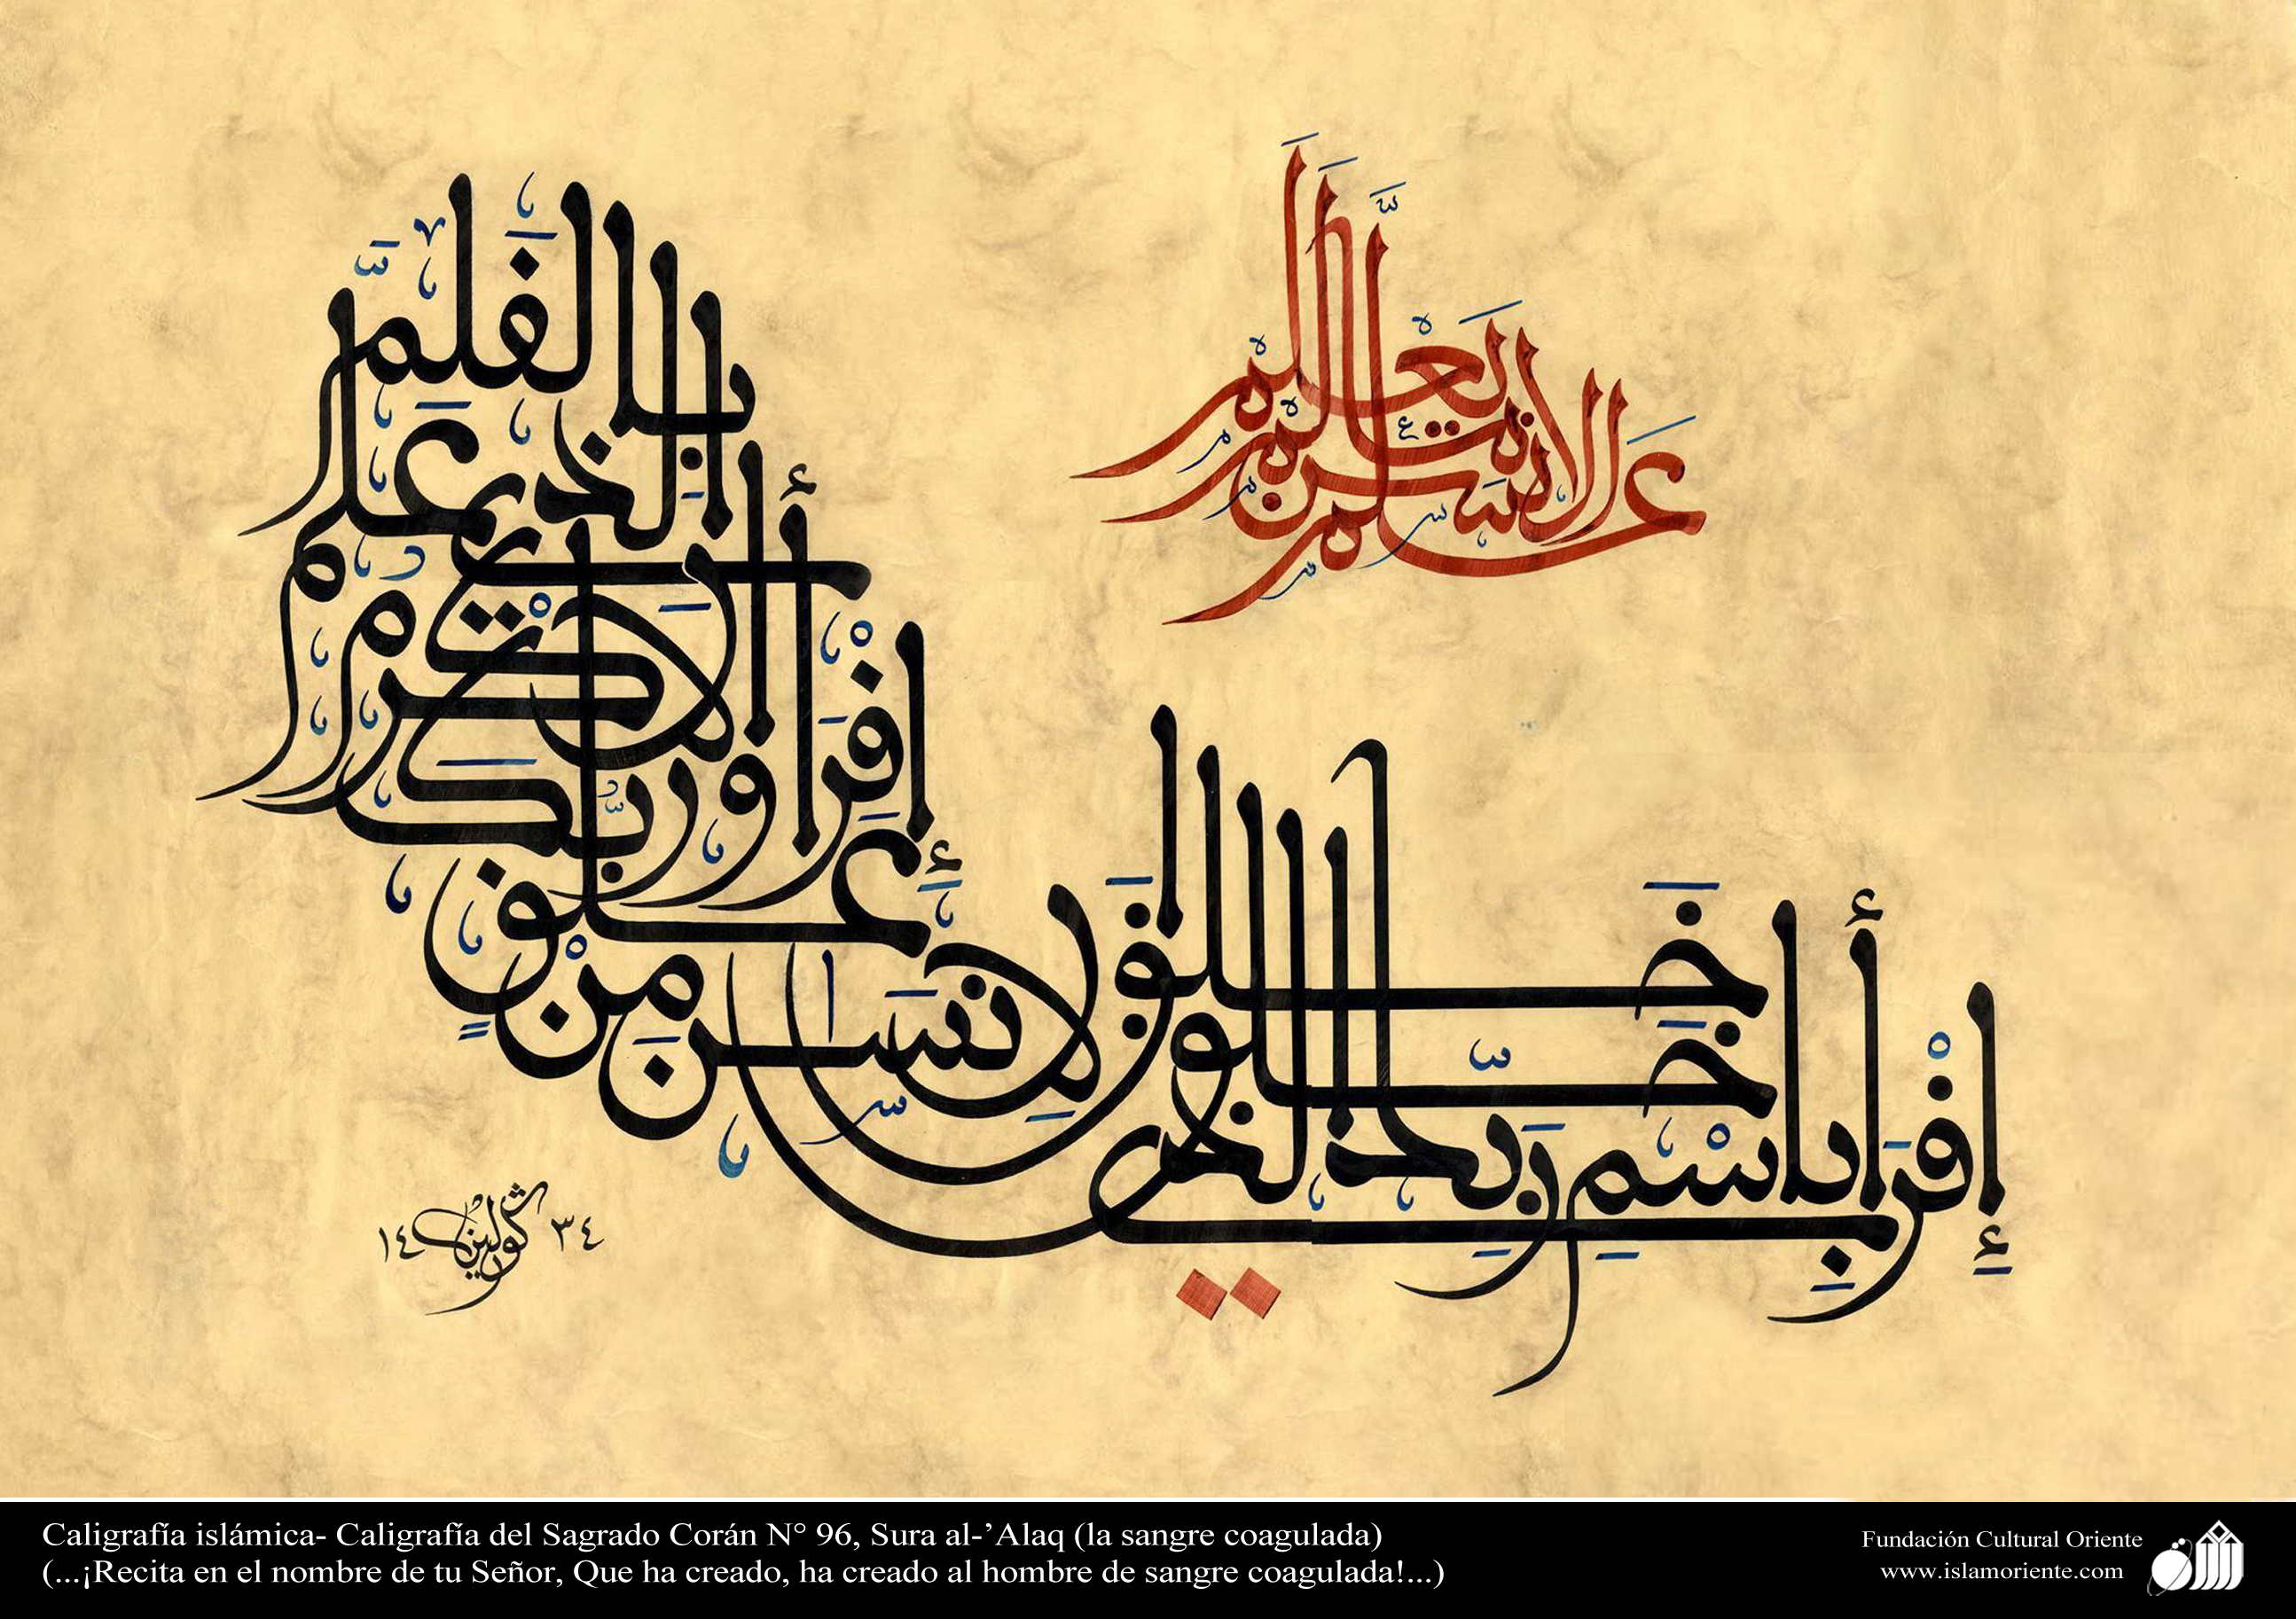 إِقْرَأ بِاسْمِ رَبِّكَ الَّذِي خَلَقَ
خَلَقَ الإِنْسَانَ مِنْ عَلَقٍ
إِقْرَأ وَرَبُّكَ الأَكْرَمُ
الَّذِي عَلَّمَ بِالْقَلَمِ
عَلَّمَ الإِنْسَانَ مَا لَمْ يَعْلَمْ
١٤٣٤
Caligrafía islámica- Caligrafía del Sagrado Corán N° 96, Sura al-’Alaq (la sangre coagulada)
(...¡Recita en el nombre de tu Señor, Que ha creado, ha creado al hombre de sangre coagulada!...)
Fundación Cultural Oriente
www.islamoriente.com